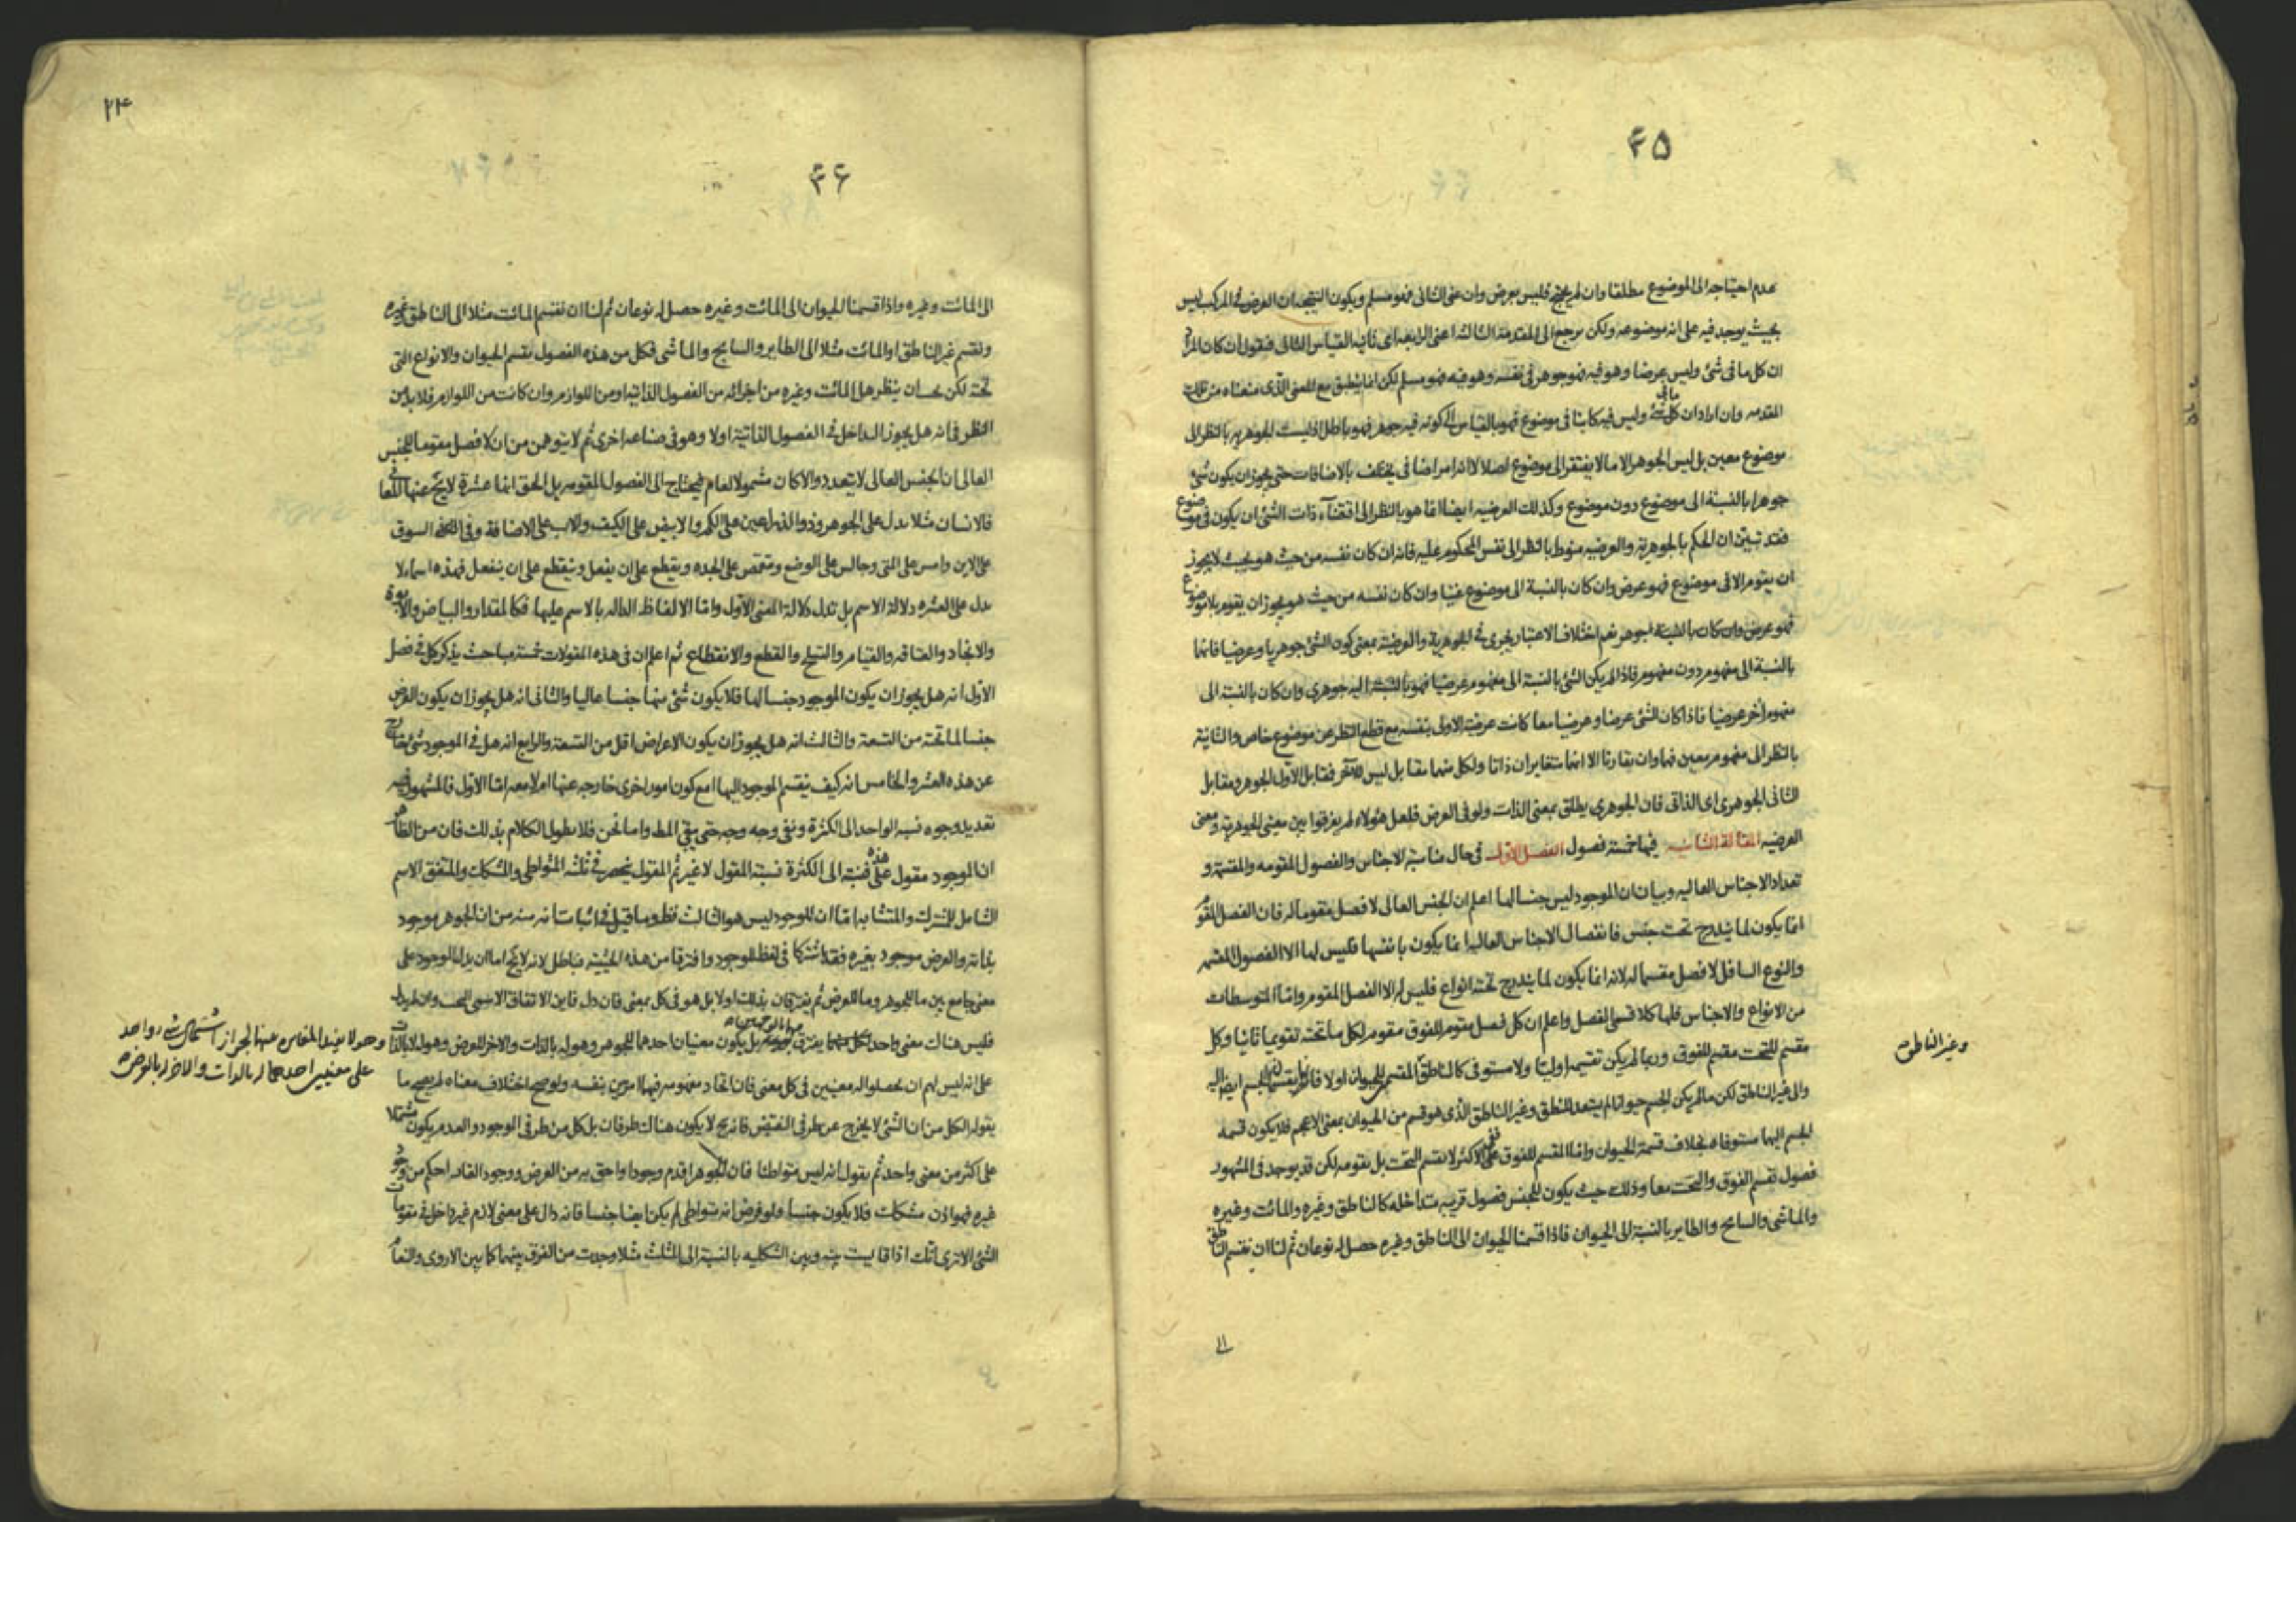 ۴۵
عدم احتياجه الى الموضوع مطلقا وان لم يحتج فليس بعرض وان عنى الثانى فهو مسلم ويكون النتيجه ان العرض فى المركب ليس
بحيث يوجد فيه على انه موضوعه ولكن يرجع الى المقدمة الثالثة اعنى الرابعه اى ثانيه القياس الثانى فنقول ان كان المراد
ان كل ما فى شئ وليس عرضا وهو فيه فهو جوهر فى نفسه وهو فيه فهو مسلم لكن انما ينطبق مع المعنى الذى منعناه من تلك
المقدمه وان اراد ان كل ما فى شئ وليس فيه كاينا فى موضوع فهو بالقياس الى كونه فيه جوهر فهو باطل اذ ليست الجوهريه بالنظر الى
موضوع معين بل ليس الجوهر الا ما لا يفتقر الى موضوع اصلا لا انه امر اضافى يختلف بالاضافات حتى يجوز ان يكون شئ
جوهرا بالنسبة الى موضوع دون موضوع وكذلك العرضيه ايضا انما هو بالنظر الى اقتضآء ذات الشئ ان يكون فى موضوع
فقد تبين ان الحكم بالجوهرية والعرضيه منوط بالنظر الى نفس المحكوم عليه فانه ان كان نفسه من حيث هو بحيث لا يجوز
ان يقوم الا فى موضوع فهو عرض وان كان بالنسبة الى موضوع غنيا وان كان نفسه من حيث هو يجوز ان يقوم بلا موضوع
فهو عرض وان كان بالنسبة لجوهر نعم اختلاف الاعتبار يجرى فى الجوهرية والعرضية بمعنى كون الشئ جوهريا وعرضيا فانها
بالنسبة الى مفهوم دون مفهوم فاذا لم يكن الشئ بالنسبة الى مفهوم عرضيا فهو بالنسبة اليه جوهرى وان كان بالنسبة الى
مفهوم آخر عرضيا فاذا كان الشئ عرضا وعرضيا معا كانت عرضية الاولى بنفسه مع قطع النظر عن موضوع خاص والثانية
بالنظر الى مفهوم معين فهما وان تقارنا الا انهما متغايران ذاتا ولكل منهما مقابل ليس للآخر فمقابل الاول الجوهر ومقابل
الثانى الجوهرى اى الذاتى فان الجوهرى يطلق بمعنى الذات ولو فى العرض فلعل هؤلاء لم يفرقوا بين معنيى الجوهرية ومعنى
العرضيه المقالة الثانيه فيها خمسة فصول الفصل الاول فى حال مناسبة الاجناس والفصول المقومه والمقسمة و
تعداد الاجناس العاليه وبيان ان الموجود ليس جنسا لها اعلم ان الجنس العالى لا فصل مقوما له فان الفصل المقوم
انما يكون لما يندرج تحت جنس فانفصال الاجناس العاليه انما يكون بانفسها فليس لها الا الفصول المقسمه
والنوع السافل لا فصل مقسما له لانه انما يكون لما يندرج تحته انواع فليس له الا الفصل المقوم واما المتوسطات
من الانواع والاجناس فلها كلا قسمى الفصل واعلم ان كل فصل مقوم للفوق مقوم لكل ما تحته تقويما ثانيا وكل
مقسم للتحت مقسم للفوق وربما لم يكن تقسيمه اوليا ولا مستوفى كالناطق المقسم للحيوان اولا فانه يقسم الجسم ايضا اليه
والى غير الناطق لكن ما لم يكن الجسم حيوانا لم يستعد للنطق وغير الناطق الذى هو قسم من الحيوان بمعنى الاعجم فلا يكون قسمه
الجسم اليهما مستوفاه بخلاف قسمة الحيوان واما المقسم للفوق فعلى الاكثر لا يقسم التحت بل يقومه لكن قد يوجد فى المشهور
فصول تقسم الفوق والتحت معا وذلك حيث يكون للجنس فصول قريبه متداخله كالناطق وغيره والمائت وغيره
والماشى والسابح والطاير بالنسبة الى الحيوان فاذا قسمنا الحيوان الى الناطق وغيره حصل له نوعان ثم لنا ان نقسم الناطق
وغير الناطق
الى
۲۴
۴۶
الى المائت وغيره واذا قسمنا الحيوان الى المائت وغيره حصل له نوعان ثم لنا ان نقسم المائت مثلا الى الناطق وغيره
ونقسم غير الناطق او المائت مثلا الى الطاير والسابح والماشى فكل من هذه الفصول يقسم الحيوان والانواع التى
تحته لكن يجب ان ينظر هل المائت وغيره من اجزائه من الفصول الذاتيه او من اللوازم وان كانت من اللوازم فلا بد من
النظر فى انه هل يجوز التداخل فى الفصول الذاتية اولا وهو فى صناعه اخرى ثم لا يتوهمن من ان لا فصل مقوما للجنس
العالى ان الجنس العالى لا يتعدد والا كان مشمولا لعام فيحتاج الى الفصول المقومه بل الحق انها عشرة لا يخرج عنها
فالانسان مثلا يدل على الجوهر وذو الذراعين على الكم والابيض على الكيف والاب على الاضافة وفى السوق
على الاين وامس على المتى وجالس على الوضع ومتقمص على الجده ويقطع على ان يفعل وينقطع على ان ينفعل فهذه اسماء لا
تدل على العشره دلالة الاسم بل تدل دلالة المعنى الاول واما الالفاظ الداله بالاسم عليها فكالمقدار والبياض والابوة
والاتحاد والعتاقه والقيام والتسلح والقطع والانقطاع ثم اعلم ان فى هذه المقولات خمسة مباحث يذكر كل فى فصل
الاول انه هل يجوز ان يكون الموجود جنسا لها فلا يكون شئ منها جنسا عاليا والثانى انه هل يجوز ان يكون العرض
جنسا لما تحته من التسعة والثالث انه هل يجوز ان يكون الاعراض اقل من التسعة والرابع انه هل فى الموجود شئ خارج
عن هذه العشر والخامس انه كيف ينقسم الموجود اليها امع كون امور اخرى خارجه عنها ام لا معه اما الاول فالمشهور فيه
تعديد وجوه نسبه الواحد الى الكثرة ونفى وجه وجه حتى يبقى المط واما نحن فلا نطول الكلام بذلك فان من الظاهر
ان الموجود مقول على هذه فنسبته الى الكثرة نسبة المقول لا غير ثم المقول ينحصر فى ثلثه المتواطى والمشكك والمتفق الاسم
الشامل للمشترك والمتشابه اما ان الموجود ليس هو الثالث فظ وما قيل فى اثباتا نه منه من ان الجوهر موجود
بذاته والعرض موجود بغيره فقد اشتركا فى لفظ الموجود وافترقا من هذه الحيثية فباطل لانه لا يخ اما ان يدل الموجود على
معنى جامع بين ما للجوهر وما للعرض ثم يفترقان بذلك اولا بل هو فى كل بمعنى فان دل فاين الاتفاق الاسمى البحت وان لم يدل
فليس هناك معنى واحد بل يكون معنيان احدهما للجوهر وهو له بالذات والاخر للعرض وهو له لا بالذات
على انه ليس لهم ان يحصلوا له معنيين فى كل معنى فان اتحاد مفهومه فيهما امر بين بنفسه ولو صح اختلاف معناه لم يصح ما
يقوله الكل من ان الشئ لا يخرج عن طرفى النقيض فانه ح لا يكون هناك طرفان بل كل من طرفى الوجود والعدم يكون مشتملا
على اكثر من معنى واحد ثم يقول انه ليس متواطئا فان الجوهر اقدم وجودا واحق به من العرض ووجود القار احكم من وجود
غيره فهو اذن مشكك فلا يكون جنسا ولو فرض انه متواطئ لم يكن ايضا جنسا فانه دال على معنى لازم غير داخل فى مقومات
الشئ الا ترى انك اذا قايست بينه وبين الشكليه بالنسبة الى المثلث مثلا وجدت من الفرق بينهما كما بين الاروى والنعام
على معنيين احدهما له بالذات والاخر له بالعرض